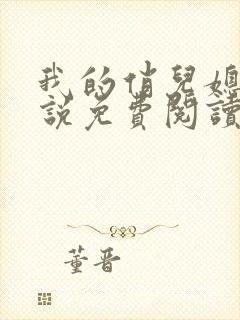 我的俏兒媳
說免費閱讀
董晋